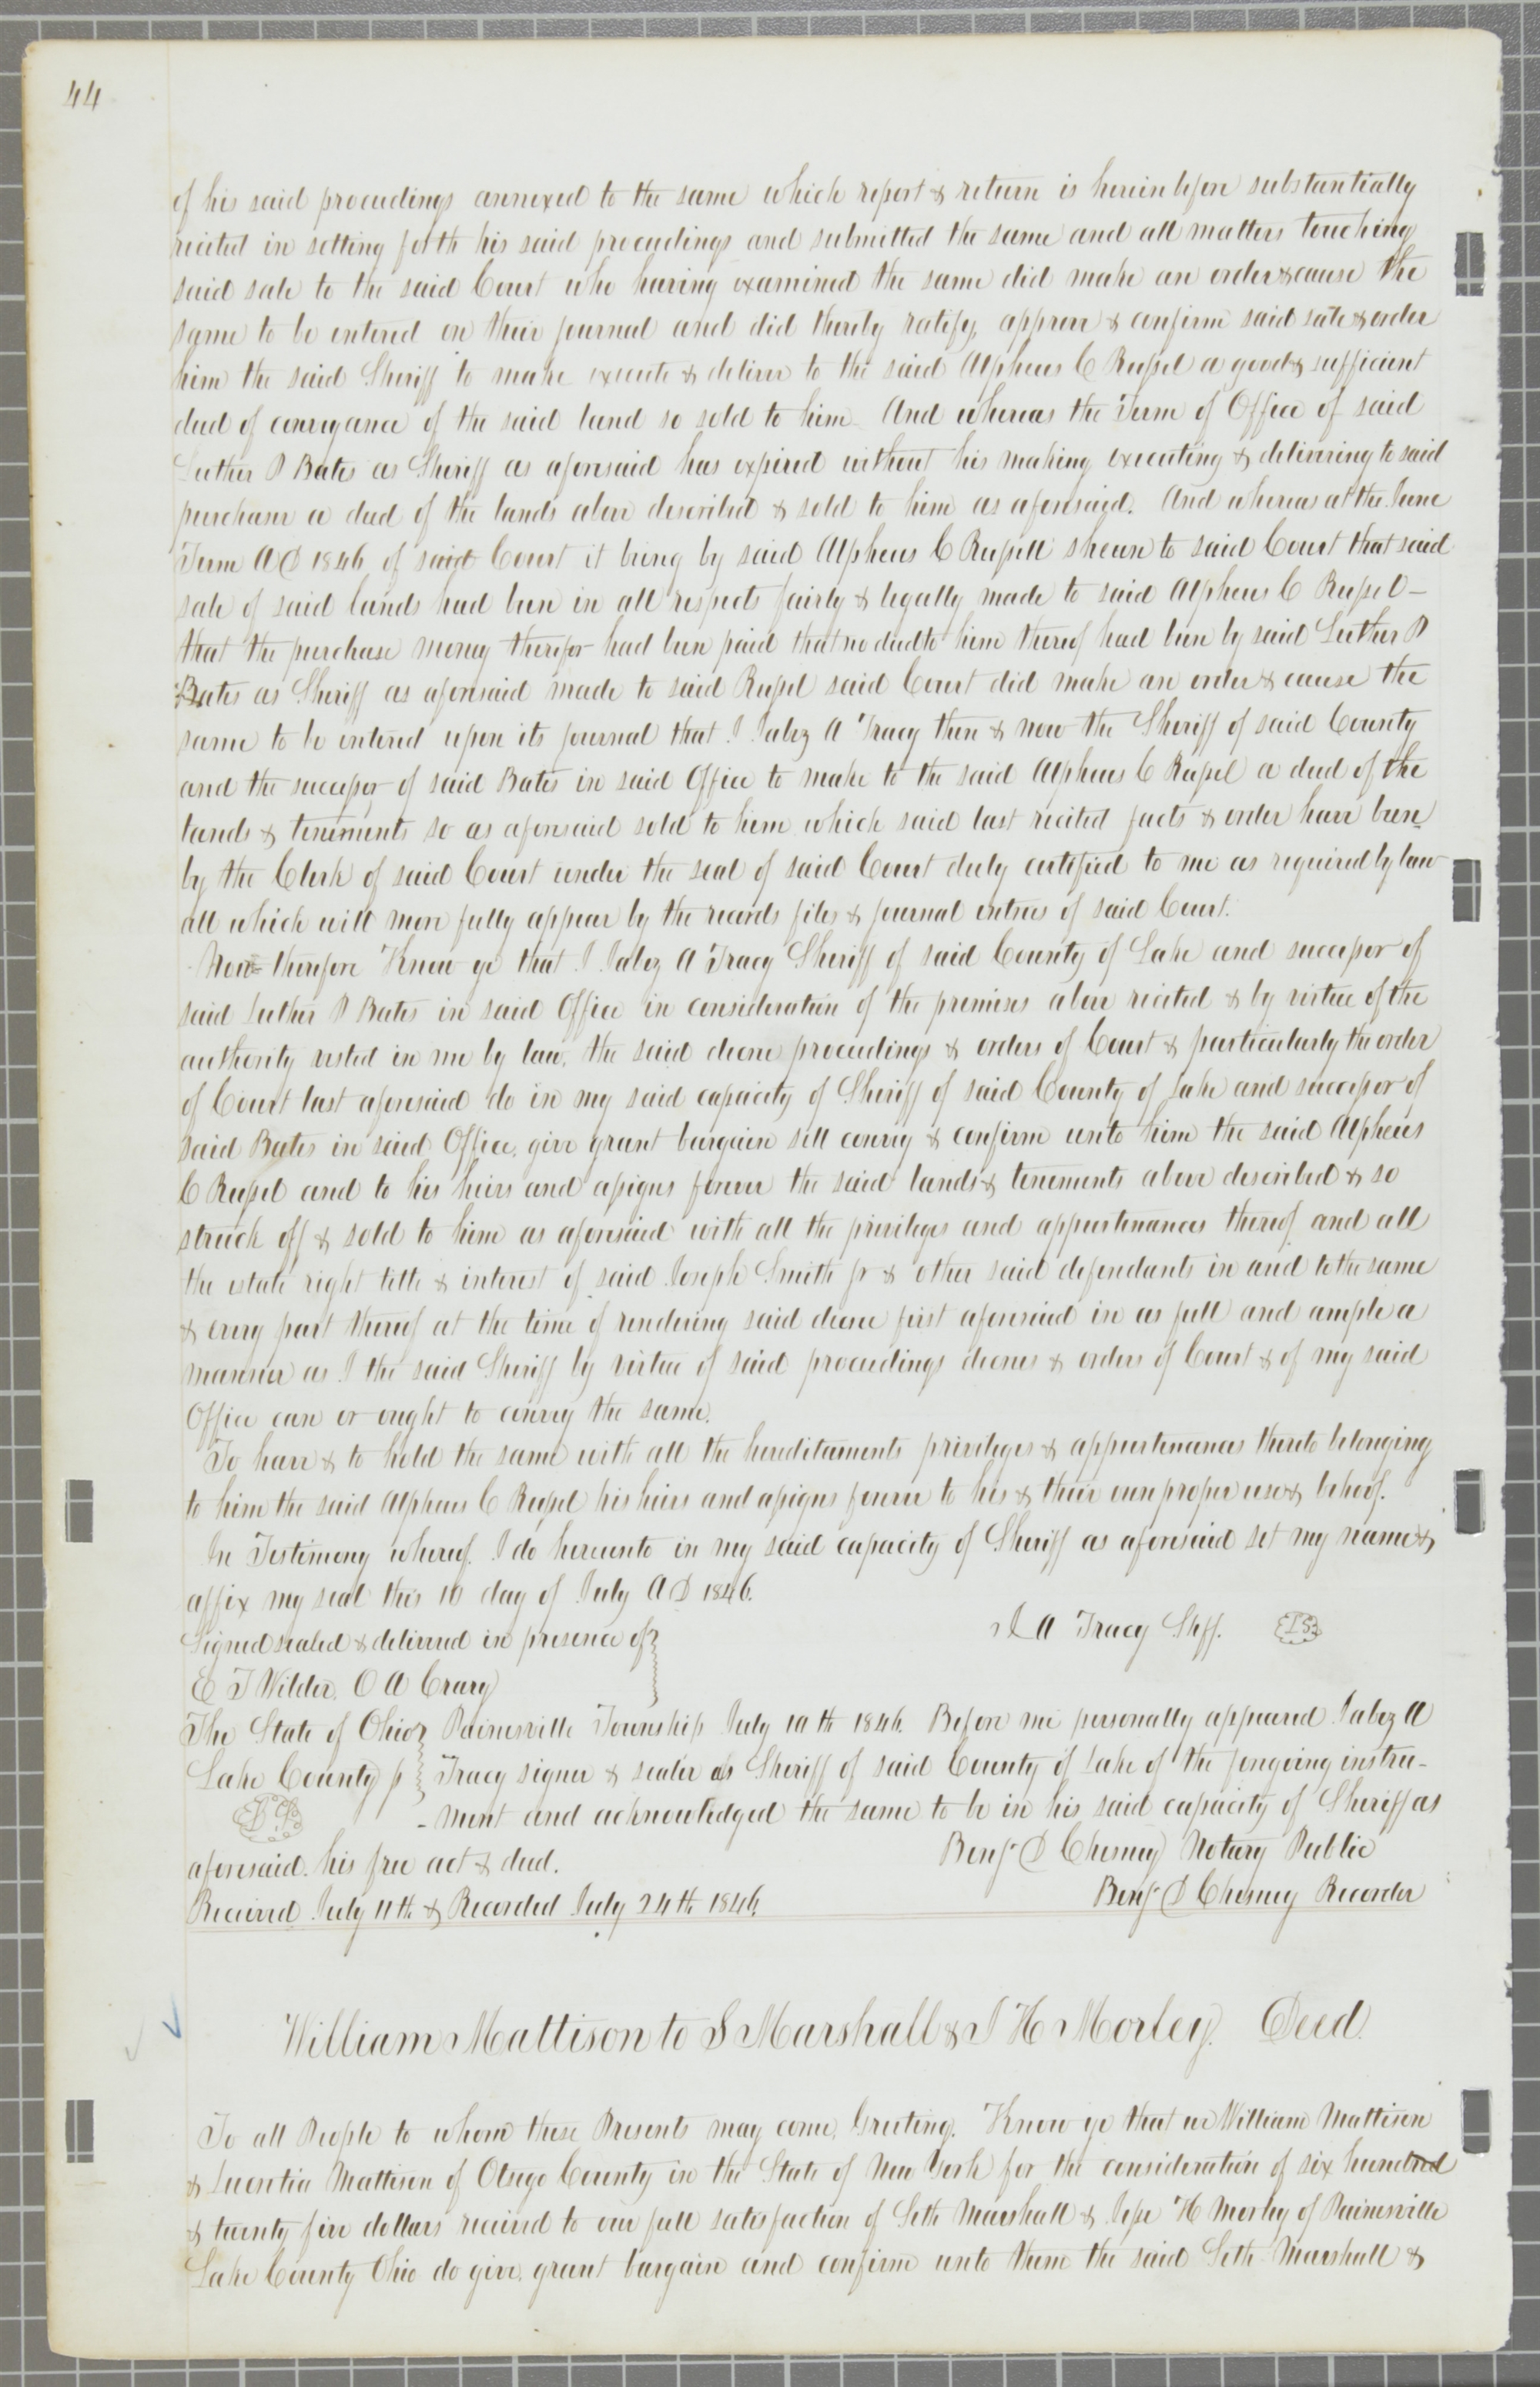 44
of his said proceedings annexed to the same which report & return is hereinbefore substantially
recited in setting forth his said proceedings and submitted the same and all matters touching
said sale to the said Court who having examined the same did make an order & cause the
same to be entered on their journal and did thereby ratify, approve & confirm said sale & order
him the said Sheriff to make execute & deliver to the said Alpheus C Russel a good & sufficient
deed of conveyance of the said land so sold to him. And whereas the Term of Office of said
Luther P Bates as Sheriff as aforesaid has expired without his making executing & delivering to said
purchaser a deed of the lands above described & sold to him as aforesaid. And whereas at the June
Term AD 1846 of said Court it being by said Alpheus C Russell shewn to said Court that said
sale of said lands had been in all respects fairly & legally made to said Alpheus C Russel –
that the purchase money therefor had been paid that no deed to him thereof had been by said Luther P
Bates as Sheriff as aforesaid made to said Russel said Court did make an order & cause the
same to be entered upon its journal that I Jabez A Tracy then & now the Sheriff of said County
and the successor of said Bates in said Office to make to the said Alpheus C Russel a deed of the
lands & tenements so as aforesaid sold to him which said last recited facts & order have been
by the Clerk of said Court under the seal of said Court duly certified to me as required by law
all which will more fully appear by the records files & journal entries of said Court.
Now therefore Know ye that I Jabez A Tracy Sheriff of said County of Lake and successor of
said Luther P Bates in said Office in consideration of the premises above recited & by virtue of the
authority vested in me by law, the said decree proceedings & orders of Court & particularly the order
of Court last aforesaid do in my said capacity of Sheriff of said County of Lake and successor of
said Bates in said Office, give grant bargain sell convey & confirm unto him the said Alpheus
C Russel and to his heirs and assigns forever the said lands & tenements above described & so
struck off & sold to him as aforesaid with all the privileges and appurtenances thereof and all
the estate right title & interest of said Joseph Smith jr & other said defendants in and to the same
& every part thereof at the time of rendering said decree first aforesaid in as full and ample a
manner as I the said Sheriff by virtue of said proceedings decrees & orders of Court & of my said
Office can or ought to convey the same.
To have & to hold the same with all the hereditaments privileges & appurtenances thereto belonging
to him the said Alpheus C Russel his heirs and assigns forever to his & their own proper use & behoof.
In Testimony whereof I do hereunto in my said capacity of Sheriff as aforesaid set my name &
affix my seal this 10 day of July AD 1846.
Signed sealed & delivered in presence of J A Tracy Shff. LS
E T Wilder. O A Crary
The State of Ohio Painesville Township July 10th 1846. Before me personally appeared Jabez A
Lake County ss Tracy signer & sealer as Sheriff of said County of Lake of the foregoing instru-
-ment and acknowledged the same to be in his said capacity of Sheriff as
aforesaid. his free act & deed. Benj. D Chesney Notary Public
Received July 11th & Recorded July 24th 1846. Benj D Chesney Recorder
William Mattison to S Marshall & J H Morley. Deed.
To all People to whom these Presents may come, Greeting. Know ye that we William Mattison
& Lucretia Mattison of Otsego County in the State of New York for the consideration of six hundred
& twenty five dollars received to our full satisfaction of Seth Marshall & Jesse H Morley of Painesville
Lake County Ohio do give, grant bargain and confirm unto them the said Seth Marshall &